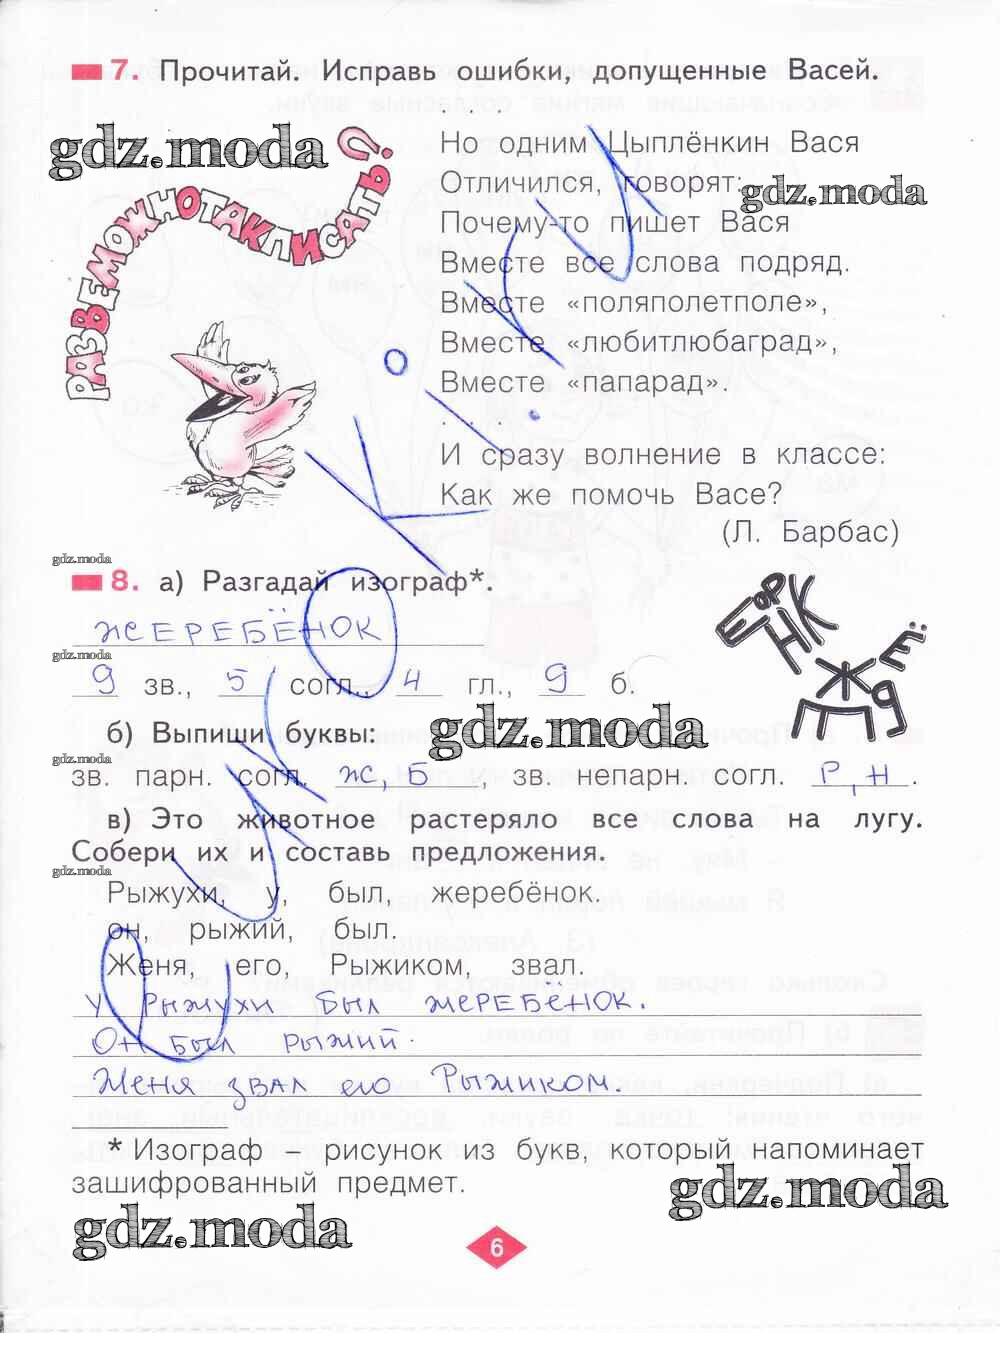 7. Прочитай. Исправь ошибки, допущенные Васей.
. . .
gdz.moda
РАЗВЕ МОЖНО ТАК ПИСАТЬ?
Но одним Цыплёнкин Вася
Отличился, говорят:
gdz.moda
Почему-то пишет Вася
Вместе все слова подряд.
Вместе «поляполетполе»,
Вместе «любитлюбаград»,
Вместе «папарад».
. . .
И сразу волнение в классе:
Как же помочь Васе?
(Л. Барбас)
gdz.moda
8. а) Разгадай изограф*.
ЖЕРЕБЁНОК
gdz.moda
9 зв., 5 согл., 4 гл., 9 б.
gdz.moda
б) Выпиши буквы:
gdz.moda
зв. парн. согл. ж, Б, зв. непарн. согл. Р, Н.
в) Это животное растеряло все слова на лугу.
Собери их и составь предложения.
gdz.moda
Рыжухи, у, был, жеребёнок.
он, рыжий, был.
Женя, его, Рыжиком, звал.
У Рыжухи был жеребёнок.
Он был рыжий.
Женя звал его Рыжиком.
* Изограф – рисунок из букв, который напоминает
зашифрованный предмет.
gdz.moda
gdz.moda
6